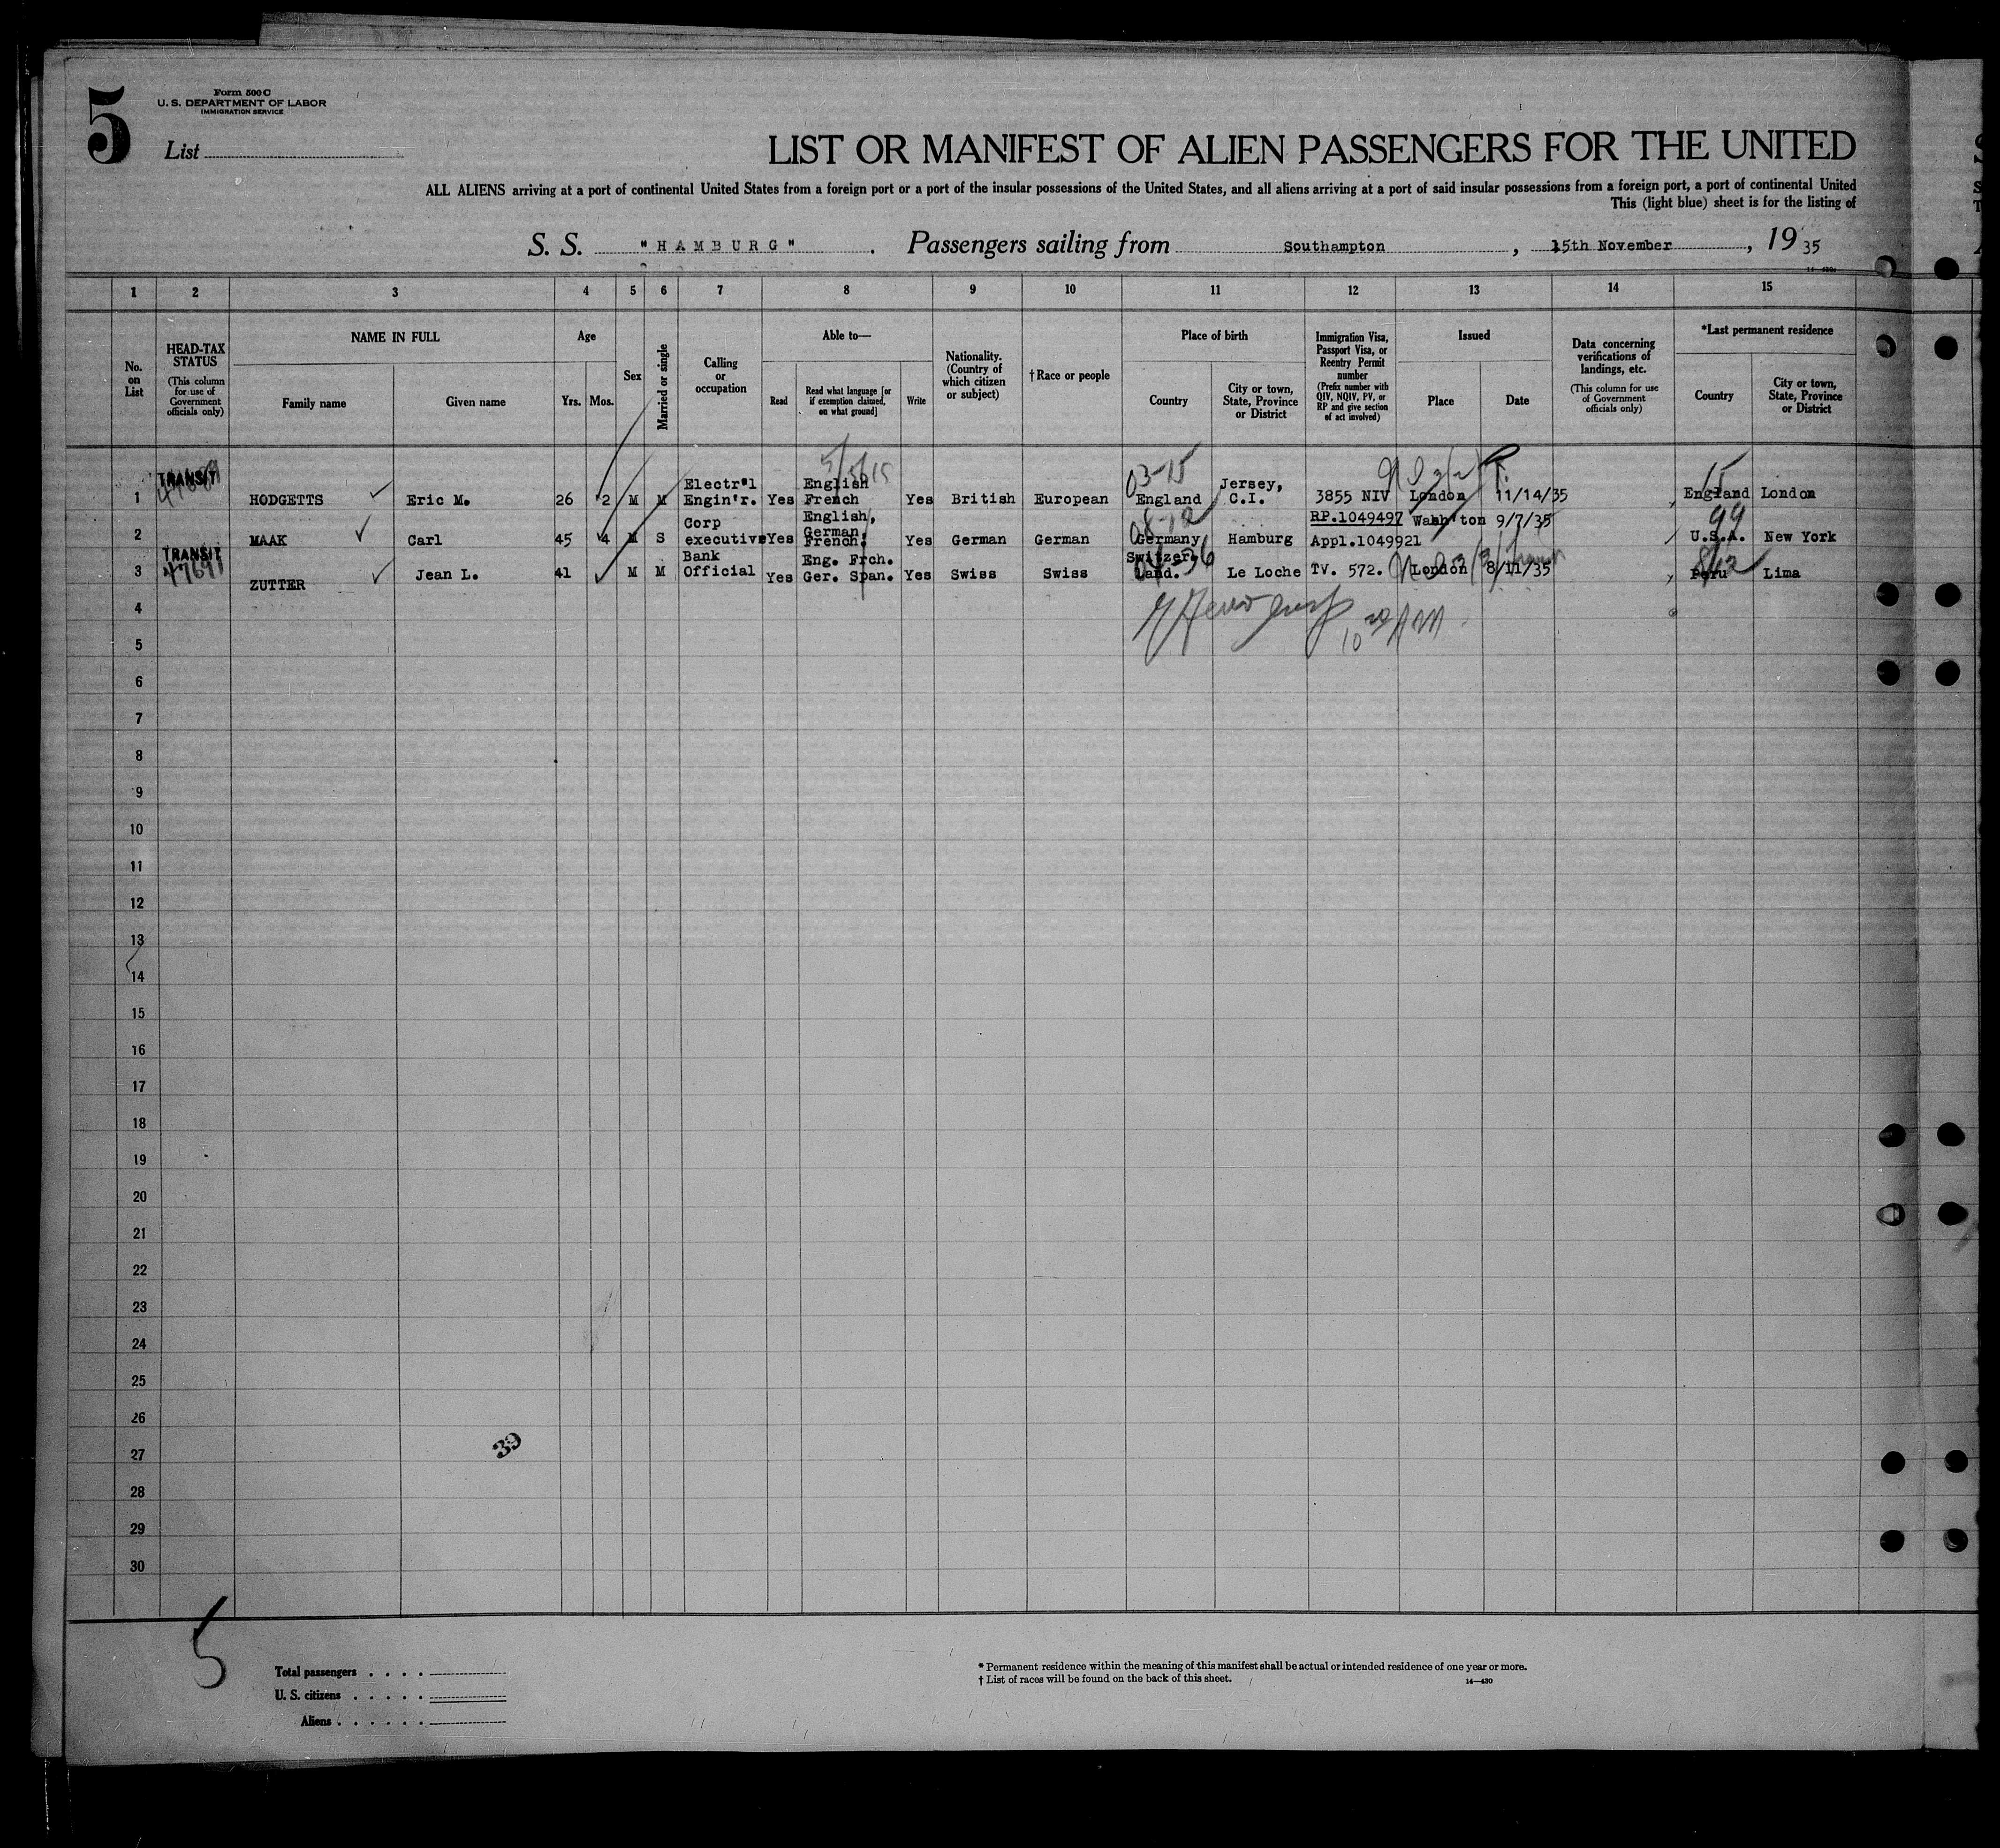 5
Form 500 C
U. S. DEPARTMENT OF LABOR
IMMIGRATION SERVICE
List
LIST OR MANIFEST OF ALIEN PASSENGERS FOR THE UNITED
ALL ALIENS arriving at a port of continental United States from a foreign port or a port of the insular possessions of the United States, and all aliens arriving at a port of said insular possessions from a foreign port, a port of continental United
This (light blue) sheet is for the listing of
S. S. "HAMBURG". Passengers sailing from Southampton, 15th November, 1935
1 2 3 4 5 6 7 8 9 10 11 12 13 14 15
No. on List
HEAD-TAX STATUS (This column for use of Government officials only)
NAME IN FULL
Family name
Given name
Age
Yrs. Mos.
Sex
Married or single
Calling or occupation
Able to—
Read
Read what language [or if exemption claimed, on what ground]
Write
Nationality. (Country of which citizen or subject)
†Race or people
Place of birth
Country
City or town, State, Province or District
Immigration Visa, Passport Visa, or Reentry Permit number (Prefix number with QIV, NQIV, PV, or RP and give section of act involved)
Issued
Place
Date
Data concerning verifications of landings, etc. (This column for use of Government officials only)
*Last permanent residence
Country
City or town, State, Province or District
1 TRANSIT HODGETTS Eric M. 26 2 M M Electr'l Engin'r. Yes English French Yes British European 03-15 England Jersey, C.I. 3855 NIV London 11/14/35 15 England London
2 MAAK Carl 45 4 M S Corp executive Yes English, German French. Yes German German Germany Hamburg RP.1049497 Appl.1049921 Wash'ton 9/7/35 99 U.S.A. New York
3 TRANSIT 47691 ZUTTER Jean L. 41 M M Bank Official Yes Eng. Frch. Ger. Span. Yes Swiss Swiss Switzer land. Le Loche TV. 572. London 8/11/35 Peru Lima
4
5
6
7
8
9
10
11
12
13
14
15
16
17
18
19
20
21
22
23
24
25
26
27
28
29
30
39
5
Total passengers . . . .
U. S. citizens . . . . .
Aliens . . . . . .
* Permanent residence within the meaning of this manifest shall be actual or intended residence of one year or more.
† List of races will be found on the back of this sheet.
14—430